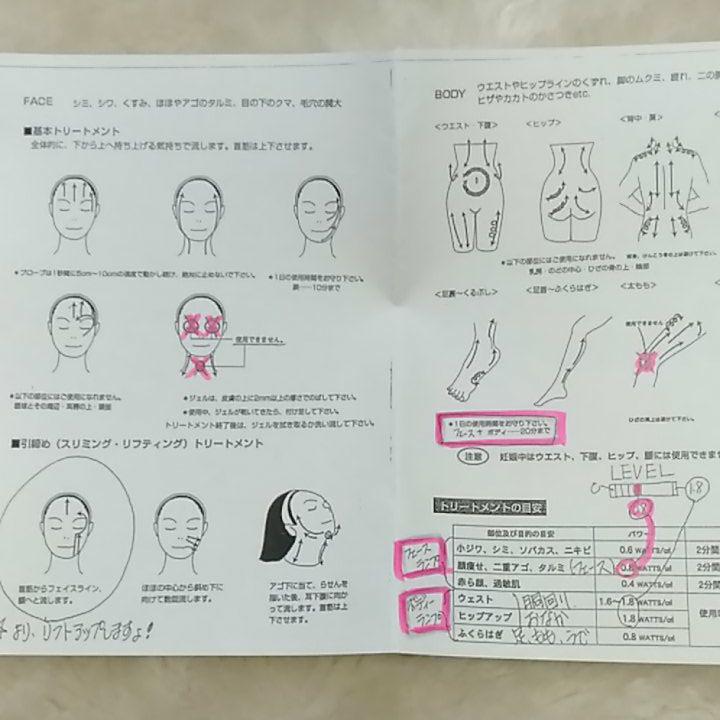 FACE シミ、シワ、くすみ、ほほやアゴのタルミ、目の下のクマ、毛穴の開大
■基本トリートメント
全体的に、下から上へ持ち上げる気持ちで流します。首筋は上下させます。
＊プローブは1秒間に5cm〜10cmの速度で動かし続け、絶対に止めないで下さい。
＊1日の使用時間をお守り下さい。
顔……10分まで
使用できません。
＊以下の部位にはご使用になれません。
眼球とその周辺・耳
＊ジェルは、皮膚の上に2mm以上の厚さでのばして下さい。
＊使用中、ジェルが乾いてきたら、付け足して下さい。
トリートメント終了後は、ジェルを拭き取るか洗い流して下さい。
■引締め（スリミング・リフティング）トリートメント
首筋からフェイスライン、
額へと流します。
ほほの中心から斜め下に
向けて数回流します。
アゴ下に当て、らせんを
描いた後、耳下腺に向か
って流します。首筋は上
下させます。
より、リフトアップしますよ!
BODY ウエストやヒップラインのくずれ、脚のムクミ、疲れ、二の
ヒザやカカトのかさつきetc.
＜ウエスト・下腹＞
＜ヒップ＞
＜背中・肩＞
＊以下の部位にはご使用になれません。
乳房・のどの中心・ひざの骨の上・
＜足裏〜くるぶし＞
＜足首〜ふくらはぎ＞
＜太もも＞
使用できません
＊1日の使用時間をお守り下さい。
フェース＋ボディ……20分まで
ひざの真上は避けて下さい。
注意 妊娠中はウエスト、下腹、ヒップ、脚には使用できませ
LEVEL
0.8
1.8
トリートメントの目安
部位及び目的の目安 パワー
フェースランプ
小ジワ、シミ、ソバカス、ニキビ 0.6 WATTS/㎠ 2分間
顔痩せ、二重アゴ、タルミ（フェース） 0.8 WATTS/㎠ 2分間
赤ら顔、過敏肌 0.4 WATTS/㎠ 2分間
ボディーランプ
ウェスト 胴回り 1.6〜1.8 WATTS/㎠
ヒップアップ おなか 1.8 WATTS/㎠ 使用
ふくらはぎ 足、もも、うで 0.8 WATTS/㎠